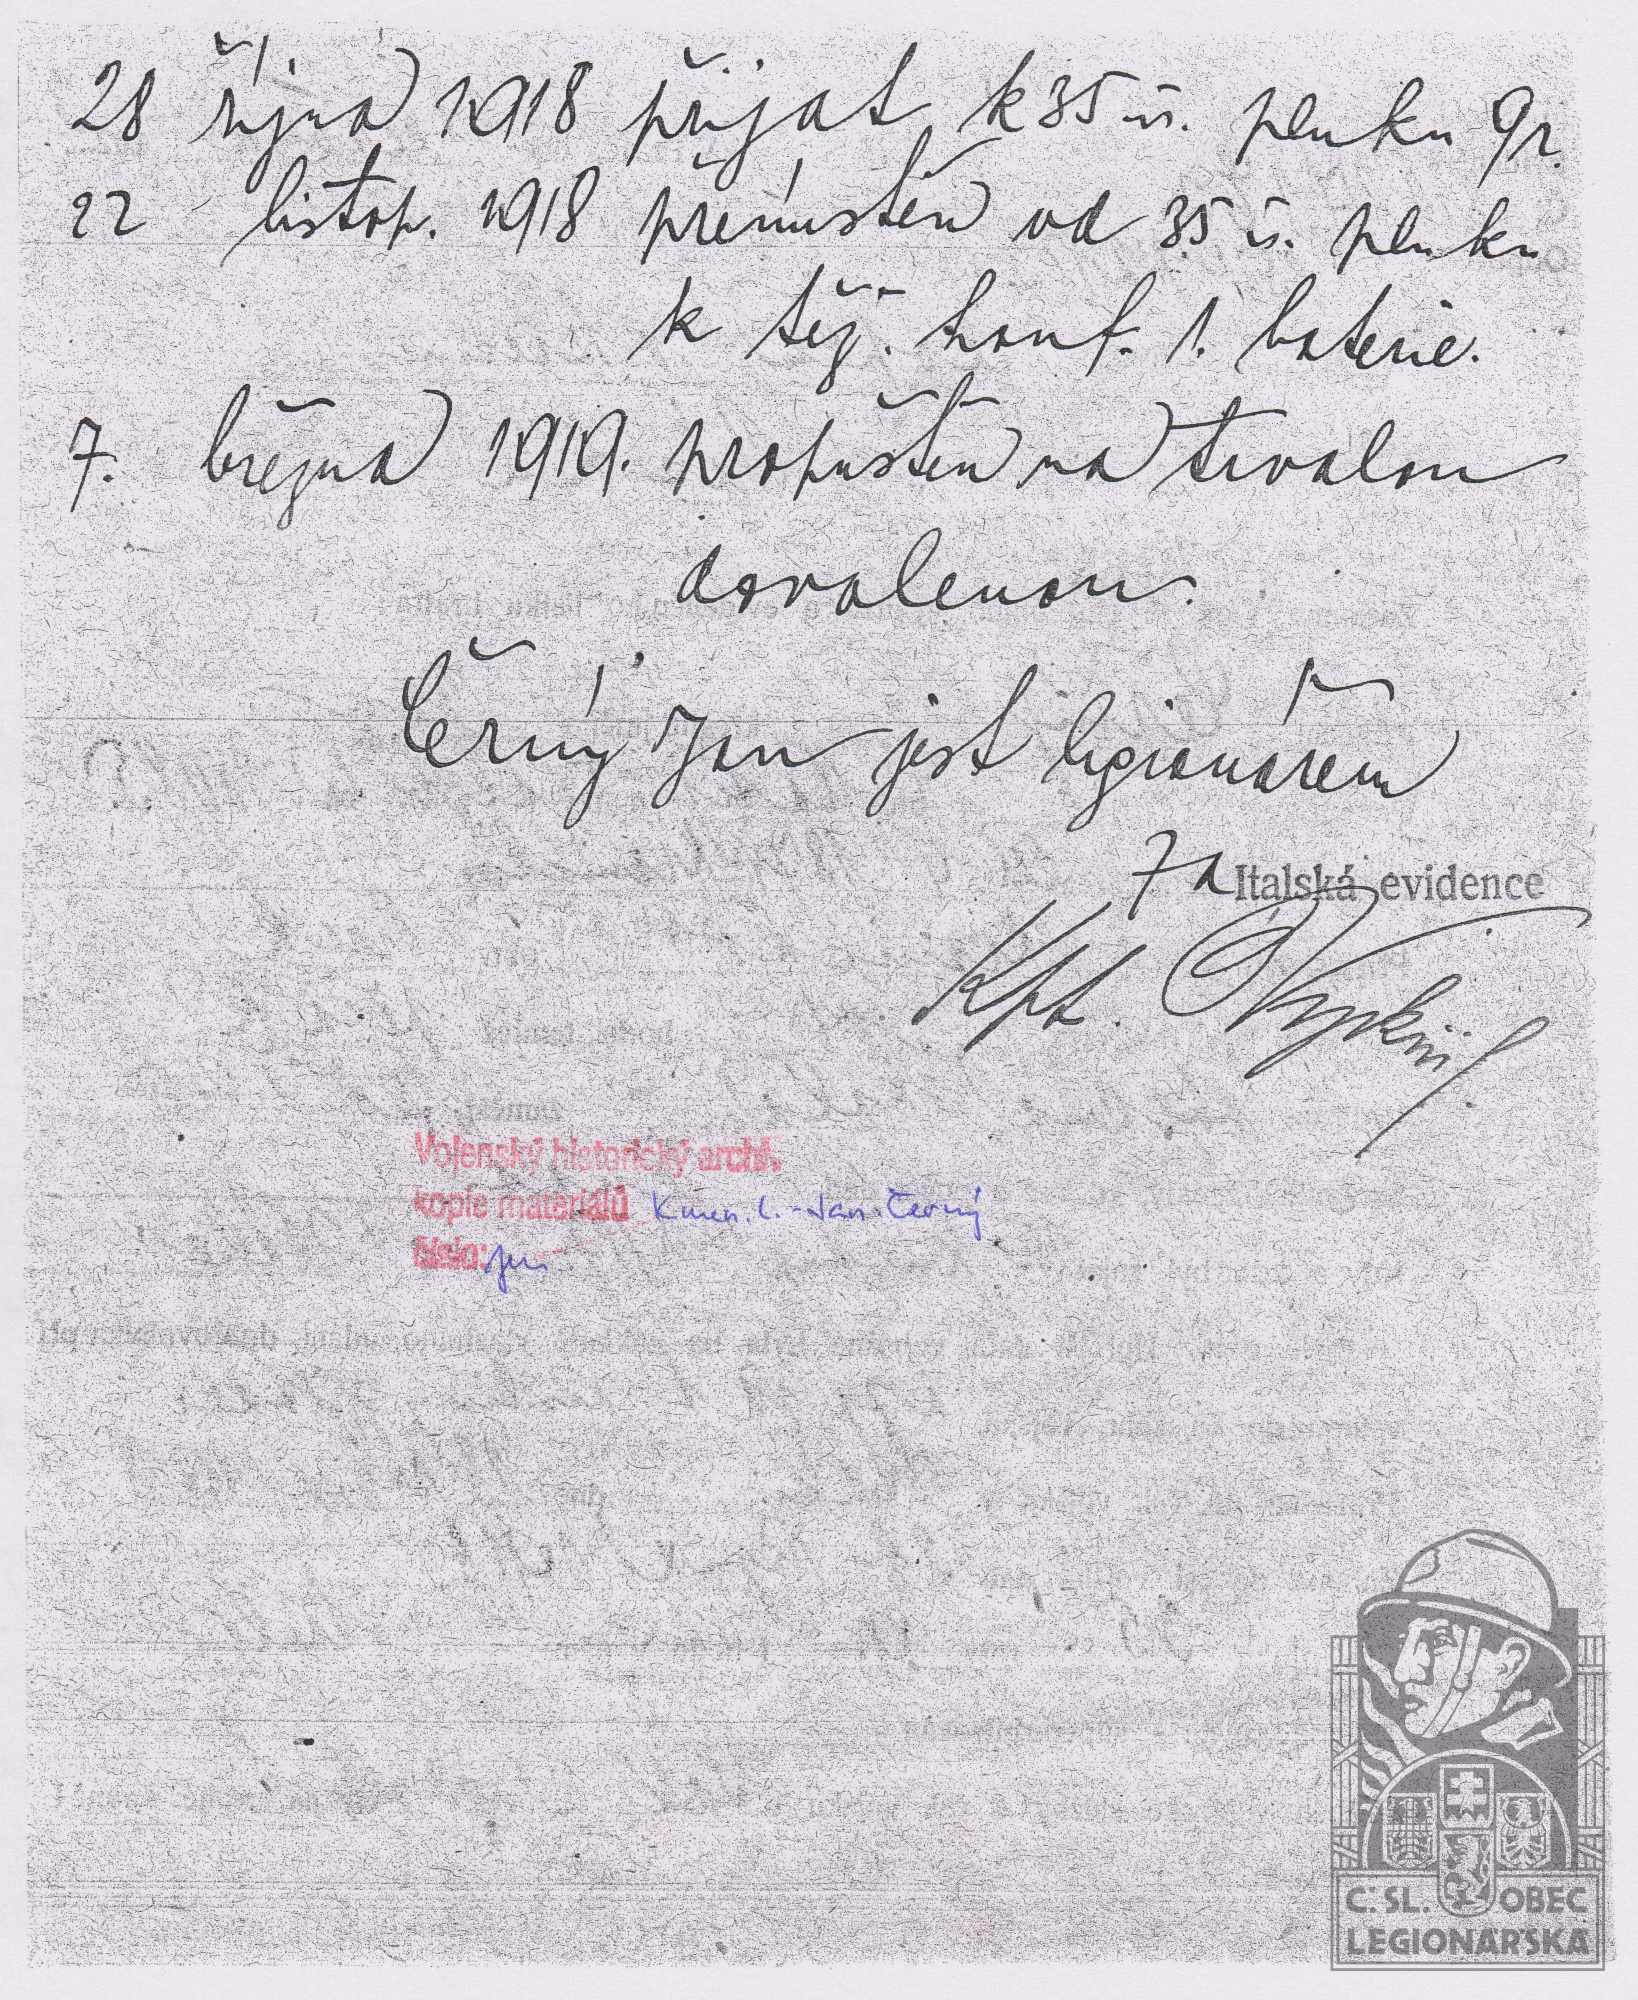 28 října 1918 přijat k 35 ú. pluku 9 r.
22 listop. 1918 přemístěn od 35 ú. pluku
k těž. houf. 1. baterie.
7. března 1919. propuštěn na trvalou
dovolenou.
Černý Jan jest legionářem
Za Italská evidence
Kpt.
Vojenský historický archiv
kopie materiálů Kmen. l. - Jan Černý
číslo:
Č. SL. OBEC
LEGIONÁŘSKÁ